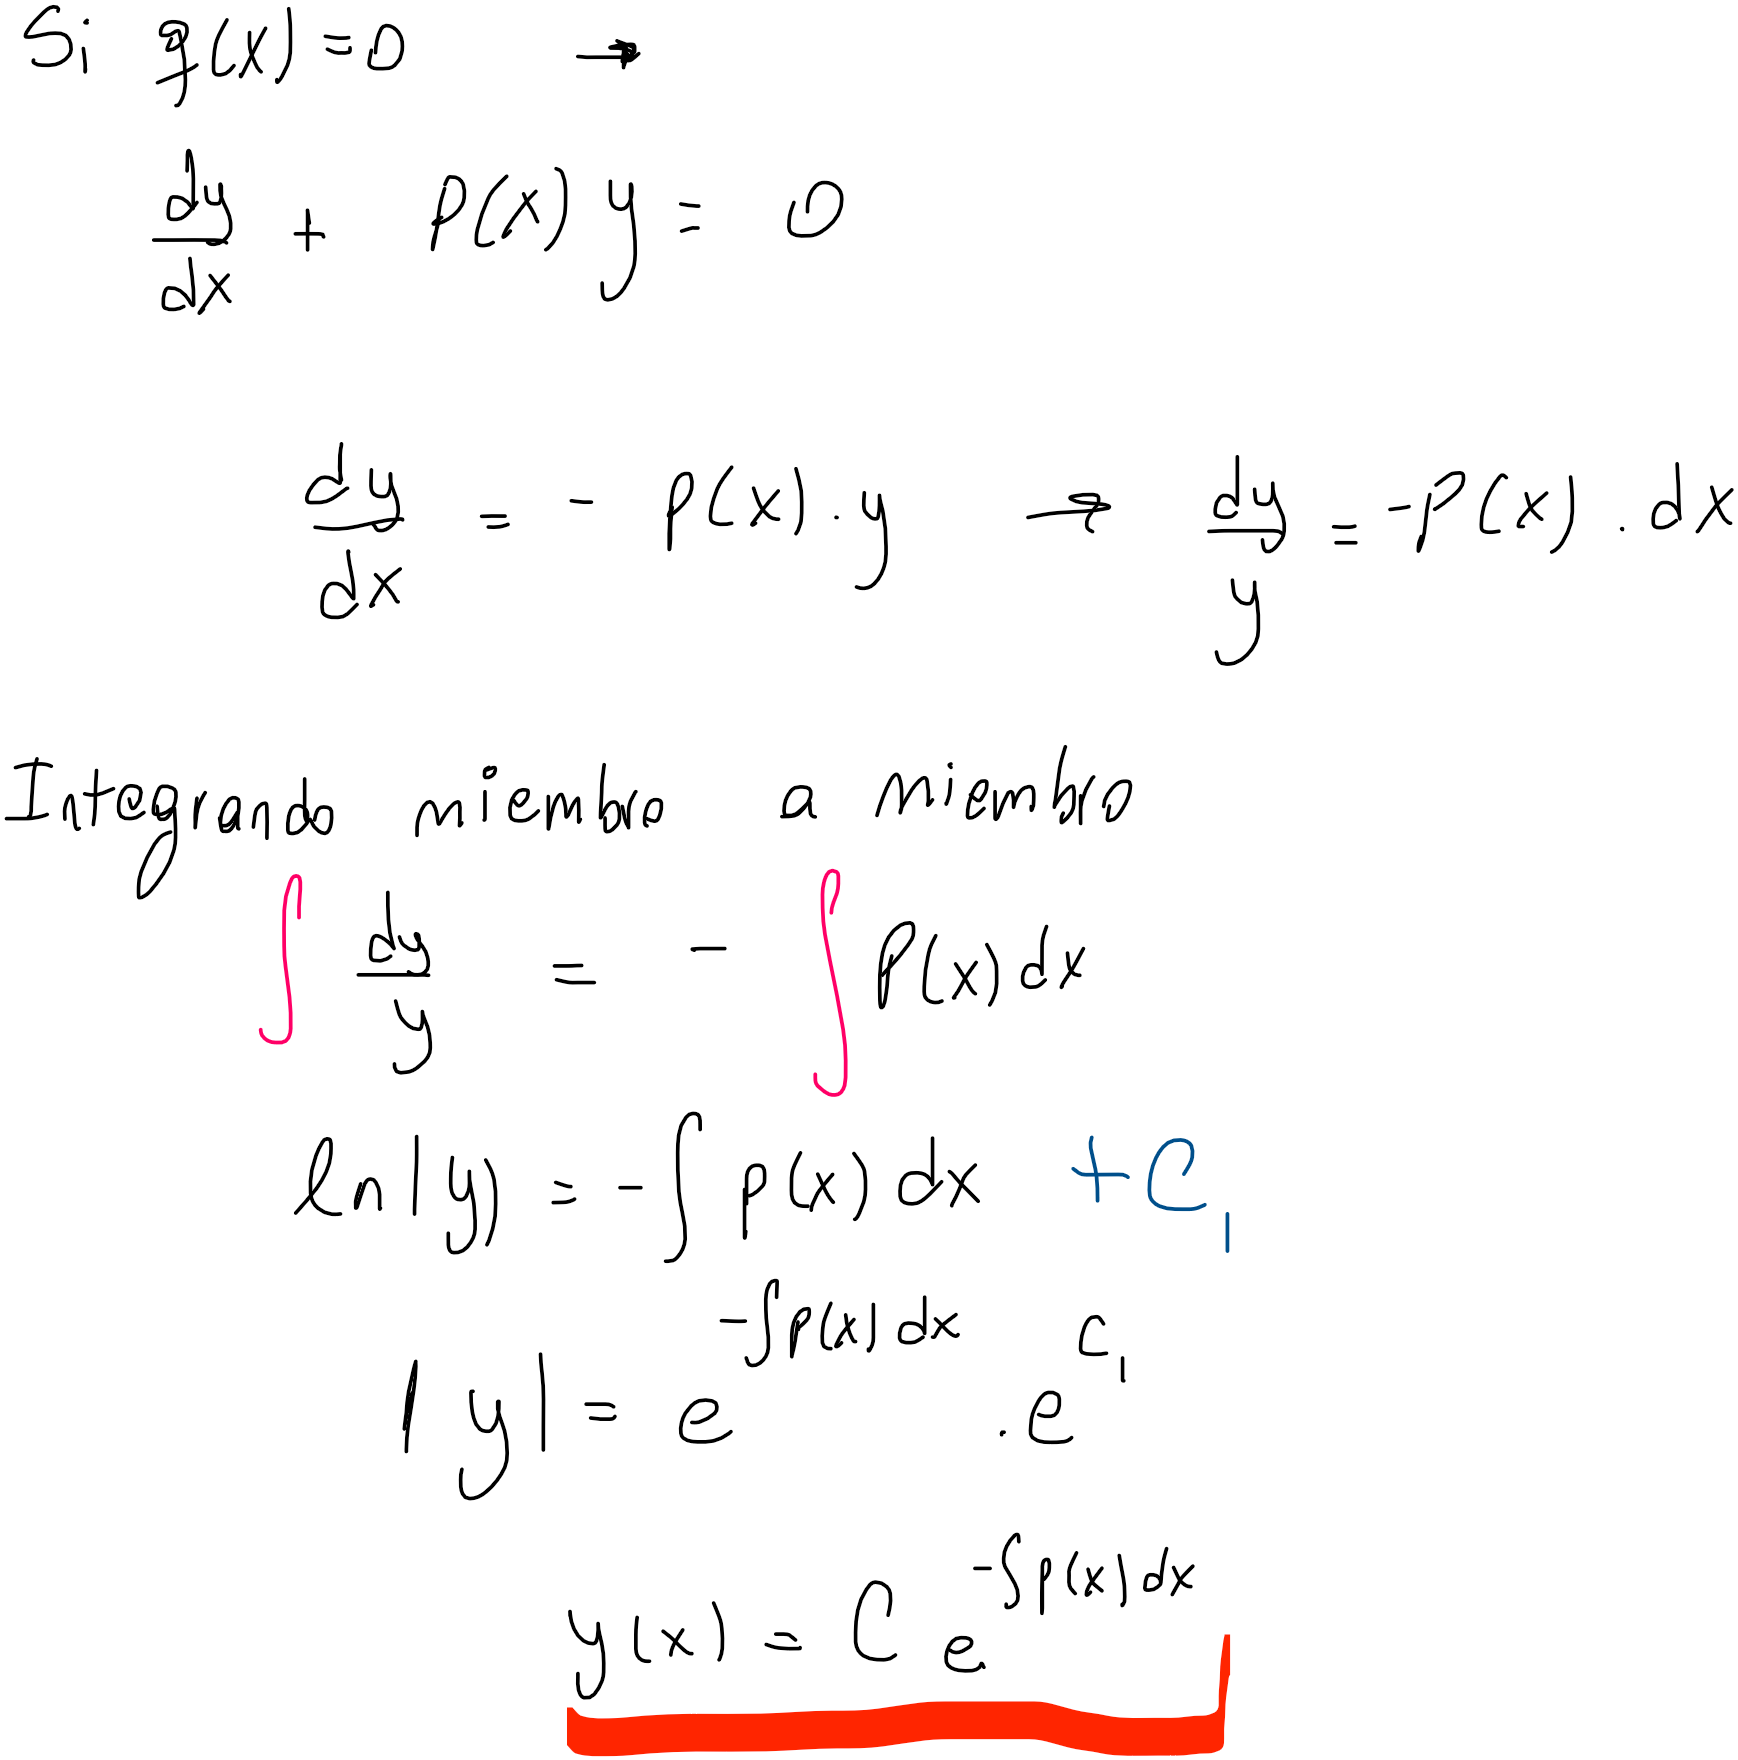 Si q(x) = 0 →
dy/dx + P(x) y = 0
dy/dx = - P(x) . y → dy/y = -P(x) . dx
Integrando miembro a miembro
∫ dy/y = - ∫ P(x) dx
ln|y) = - ∫ p(x) dx + C₁
|y| = e^(-∫p(x) dx) . e^(C₁)
y(x) = C e^(-∫p(x) dx)